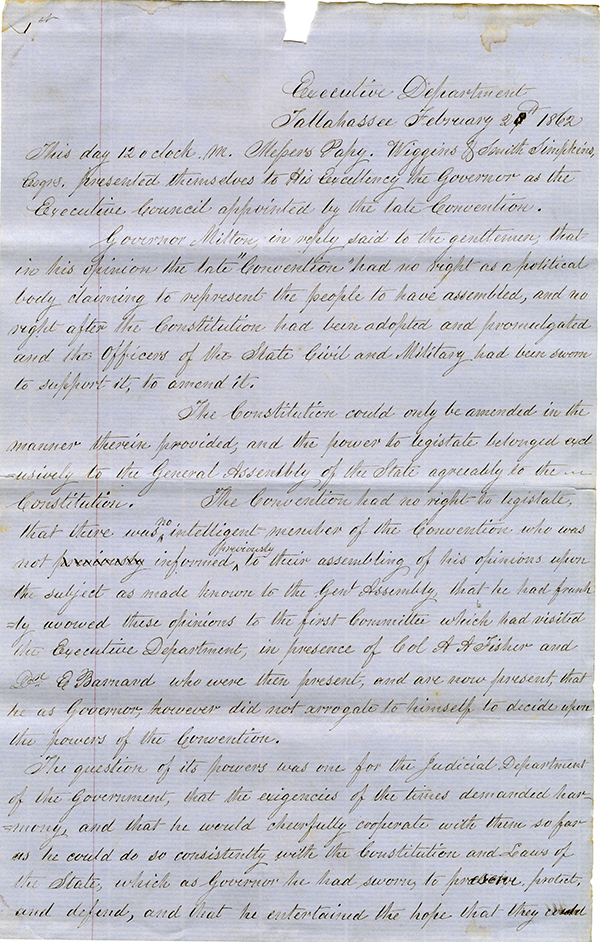 1st
Executive Department
Tallahassee February 28th 1862
This day 12 o clock, M. Messers Papy, Wiggins & Smith Simpkins,
Esqrs. presented themselves to His Excellency the Governor as the
Executive Council appointed by the late Convention.
Governor Milton, in reply said to the gentlemen, that
in his opinion the late "Convention" had no right as a political
body claiming to represent the people to have assembled, and no
right after the Constitution had been adopted and promulgated
and the Officers of the State Civil and Military had been sworn
to support it, to amend it.
The Constitution could only be amended in the
manner therein provided, and the power to legistate belonged excl
=usively to the General Assembly of the State agreeably to the
Constitution. The Convention had no right to legistate,
that there was no intelligent member of the Convention who was
not previously informed, previously to their assembling of his opinions upon
the subject as made known to the Genl Assembly, that he had frank
=ly avowed these opinions to the first Committee which had visited
the Executive Department, in presence of Col A A Fisher and
E Barnard who were then present, and are now present, that
he as Governor, however did not arrogate to himself to decide upon
the powers of the Convention.
The question of its powers was one for the Judicial Department
of the Government, that the exigencies of the times demanded har=
=mony, and that he would cheerfully cooperate with them so far
as he could do so consistently with the Constitution and Laws of
the State, which as Governor he had sworn, to preserve, protect,
and defend, and that he entertained the hope that they could